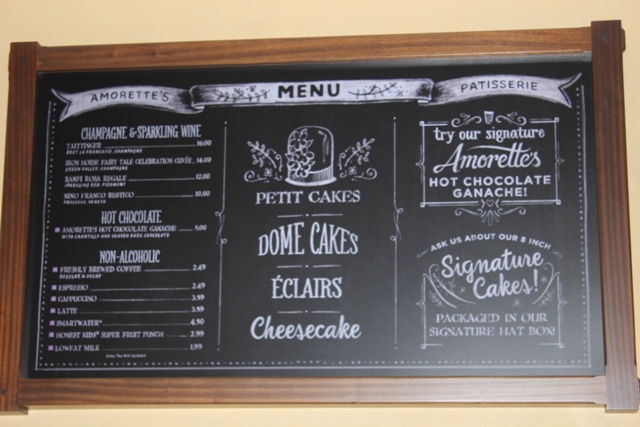 AMORETTE'S
MENU
PATISSERIE
CHAMPAGNE & SPARKLING WINE
TAITTINGER 16.00
BRUT LA FRANCAISE, CHAMPAGNE
IRON HORSE FAIRY TALE CELEBRATION CUVÉE 14.00
GREEN VALLEY, CHAMPAGNE
BANFI ROSA REGALE 12.00
SPARKLING RED, PIEDMONT
NINO FRANCO RUSTICO 10.00
PROSECCO, VENETO
HOT CHOCOLATE
AMORETTE'S HOT CHOCOLATE GANACHE 5.00
WITH CHANTILLY AND SHAVED DARK CHOCOLATE
NON-ALCOHOLIC
FRESHLY BREWED COFFEE 2.49
REGULAR & DECAF
ESPRESSO 2.49
CAPPUCCINO 3.59
LATTE 3.59
SMARTWATER® 4.50
HONEST KIDS® SUPER FRUIT PUNCH 2.99
LOWFAT MILK 1.99
PETIT CAKES
DOME CAKES
ÉCLAIRS
Cheesecake
try our signature
Amorette's
HOT CHOCOLATE
GANACHE!
ASK US ABOUT OUR 8 INCH
Signature
Cakes!
PACKAGED IN OUR
SIGNATURE HAT BOX!